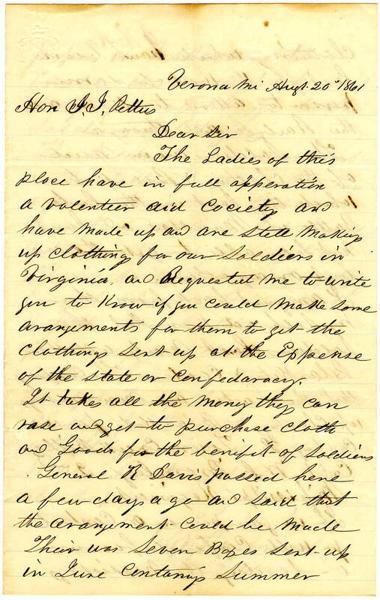 Verona Mi Augt 20th 1861
Hon J. J. Pettus
Dear Sir
The Ladies of this
place have in full opperation
a volenteer aid Cociety and
have made up and are still making
up clothing for our Soldiers in
Virginia, and Requested me to write
you to Know if you could make some
arangements for them to get the
clothing sent up at the Expense
of the state or confedaracy.
It takes all the money they can
rase and get to purchase cloth
and Goods for the benifit of Soldiers
. General R Davis passed here
a few days a go and said that
the arangement could be made
Their was Seven Boxes sent up
in June Containing Summer